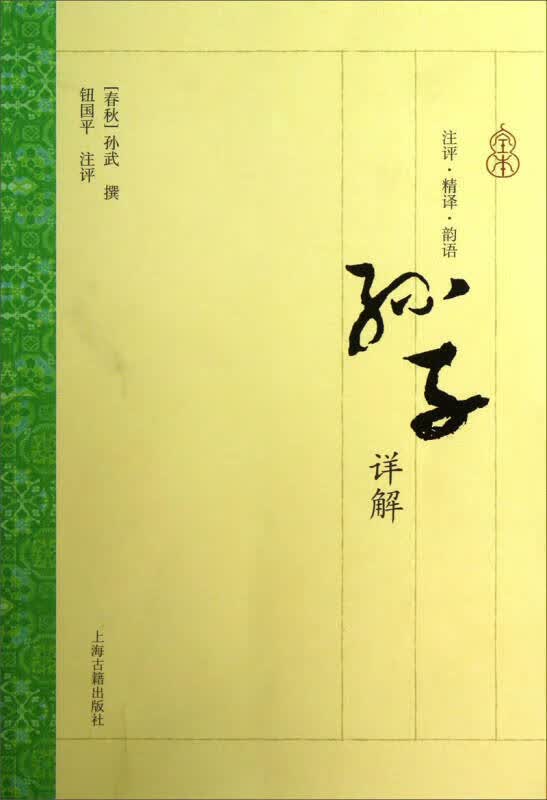 全本
注评·精译·韵语
孙子
详解
[春秋]孙武 撰
钮国平 注评
上海古籍出版社